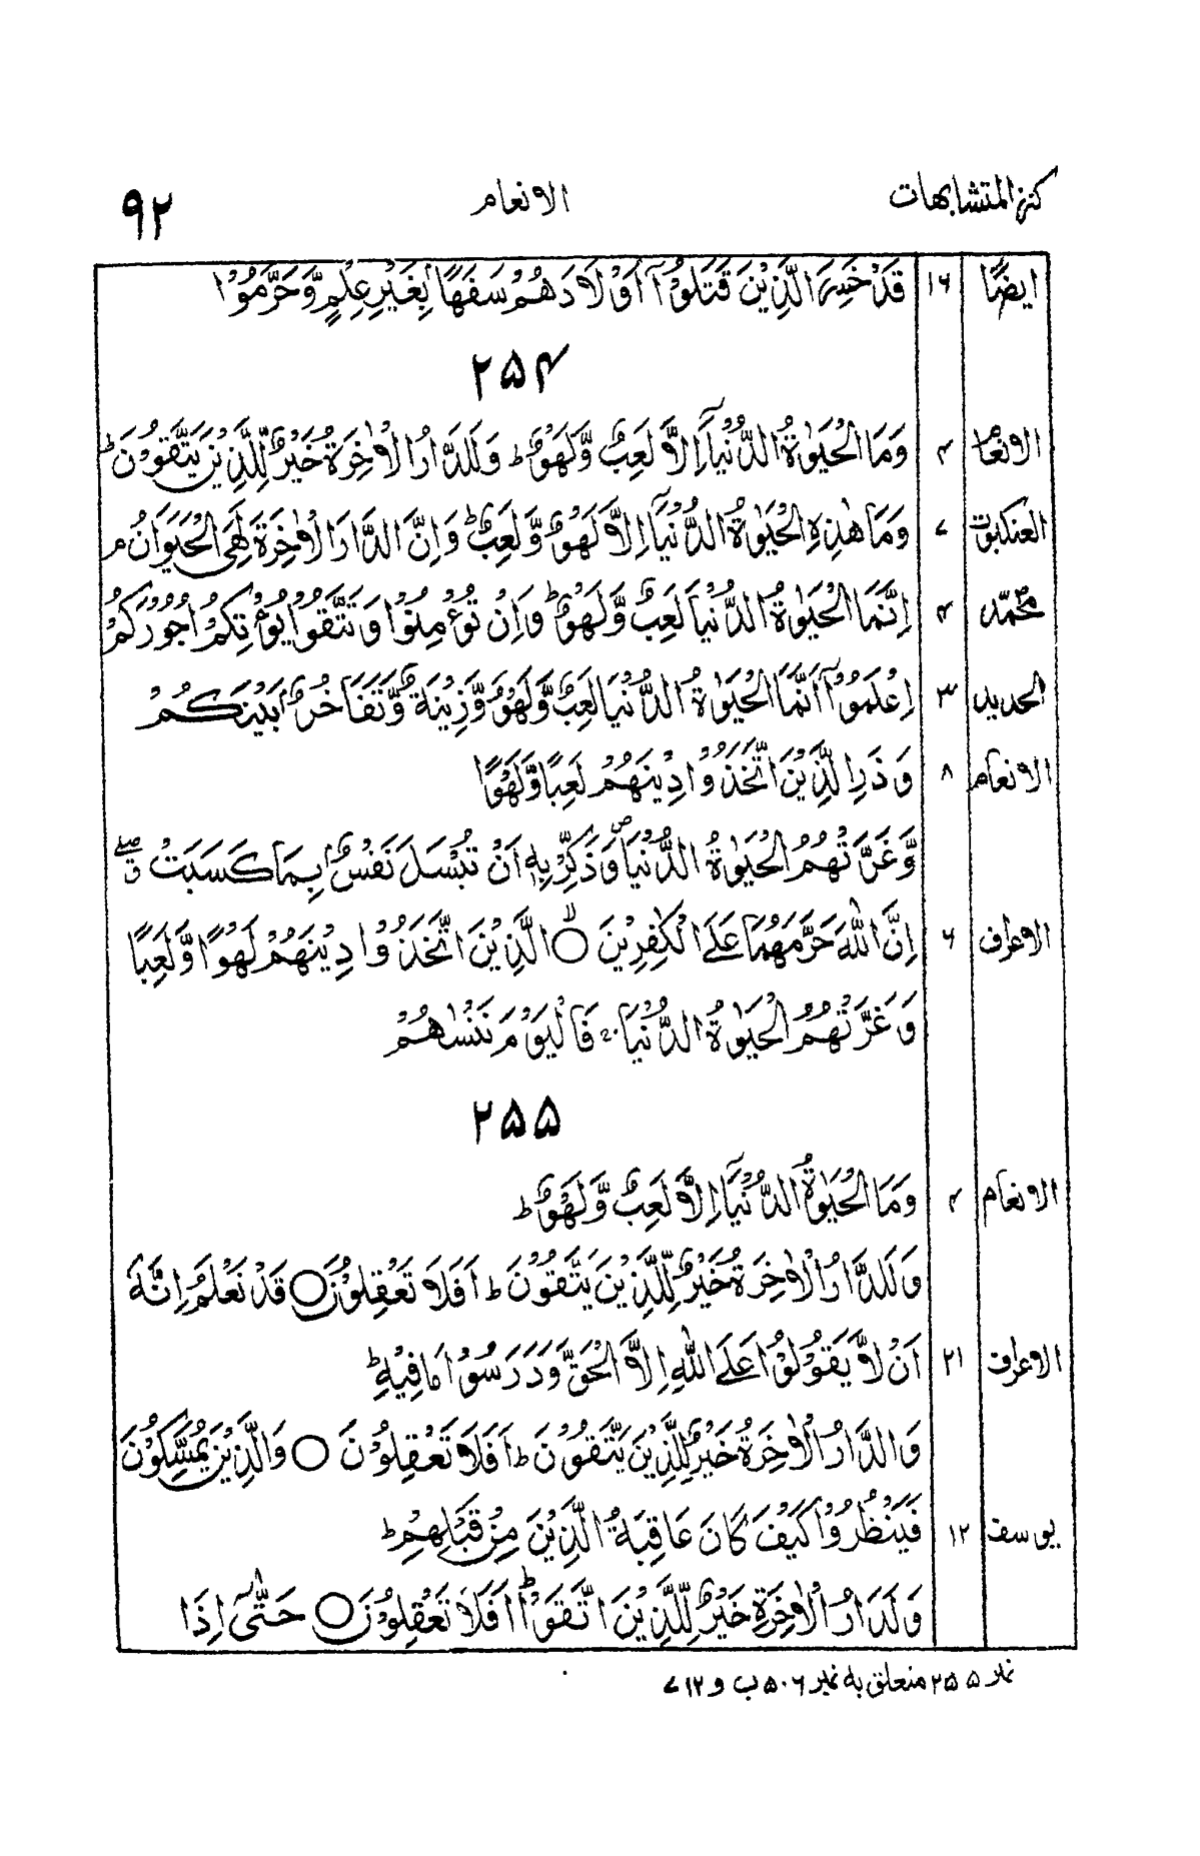 کنز المتشابہات الانعام ۹۲
ایضًا ۱۶ قَدْ خَسِرَ الَّذِیْنَ قَتَلُوْۤا اَوْلَادَهُمْ سَفَهًۢا بِغَیْرِ عِلْمٍ وَّحَرَّمُوْا
۲۵۴
الانعام ۴ وَمَا الْحَیٰوةُ الدُّنْیَاۤ اِلَّا لَعِبٌ وَّلَهْوٌ ؕ وَلَلدَّارُ الْاٰخِرَةُ خَیْرٌ لِّلَّذِیْنَ یَتَّقُوْنَ ؕ
العنکبوت ۷ وَمَا هٰذِهِ الْحَیٰوةُ الدُّنْیَاۤ اِلَّا لَهْوٌ وَّلَعِبٌ ؕ وَاِنَّ الدَّارَ الْاٰخِرَةَ لَهِیَ الْحَیَوَانُ ۘ
محمّد ۴ اِنَّمَا الْحَیٰوةُ الدُّنْیَا لَعِبٌ وَّلَهْوٌ ؕ وَاِنْ تُؤْمِنُوْا وَتَتَّقُوْا یُؤْتِكُمْ اُجُوْرَكُمْ
الحدید ۳ اِعْلَمُوْۤا اَنَّمَا الْحَیٰوةُ الدُّنْیَا لَعِبٌ وَّلَهْوٌ وَّزِیْنَةٌ وَّتَفَاخُرٌۢ بَیْنَكُمْ
الانعام ۸ وَذَرِ الَّذِیْنَ اتَّخَذُوْا دِیْنَهُمْ لَعِبًا وَّلَهْوًا
وَّغَرَّتْهُمُ الْحَیٰوةُ الدُّنْیَا وَذَكِّرْ بِهٖۤ اَنْ تُبْسَلَ نَفْسٌۢ بِمَا كَسَبَتْ ۖق
الاعراف ۶ اِنَّ اللّٰهَ حَرَّمَهُمَا عَلَى الْكٰفِرِیْنَ ۙ○ الَّذِیْنَ اتَّخَذُوْا دِیْنَهُمْ لَهْوًا وَّلَعِبًا
وَغَرَّتْهُمُ الْحَیٰوةُ الدُّنْیَا ۚ فَالْیَوْمَ نَنْسٰىهُمْ
۲۵۵
الانعام ۴ وَمَا الْحَیٰوةُ الدُّنْیَاۤ اِلَّا لَعِبٌ وَّلَهْوٌ ؕ
وَلَلدَّارُ الْاٰخِرَةُ خَیْرٌ لِّلَّذِیْنَ یَتَّقُوْنَ ؕ اَفَلَا تَعْقِلُوْنَ ○ قَدْ نَعْلَمُ اِنَّهٗ
الاعراف ۲۱ اَنْ لَّا یَقُوْلُوْا عَلَى اللّٰهِ اِلَّا الْحَقَّ وَدَرَسُوْا مَا فِیْهِ ؕ
وَالدَّارُ الْاٰخِرَةُ خَیْرٌ لِّلَّذِیْنَ یَتَّقُوْنَ ؕ اَفَلَا تَعْقِلُوْنَ ○ وَالَّذِیْنَ یُمَسِّكُوْنَ
یوسف ۱۲ فَیَنْظُرُوْا كَیْفَ كَانَ عَاقِبَةُ الَّذِیْنَ مِنْ قَبْلِهِمْ ؕ
وَلَدَارُ الْاٰخِرَةِ خَیْرٌ لِّلَّذِیْنَ اتَّقَوْا ؕ اَفَلَا تَعْقِلُوْنَ ○ حَتّٰۤى اِذَا
نمبر ۲۵۵ متعلق بہ نمبر ۵۰۶ ب و ۷۱۲